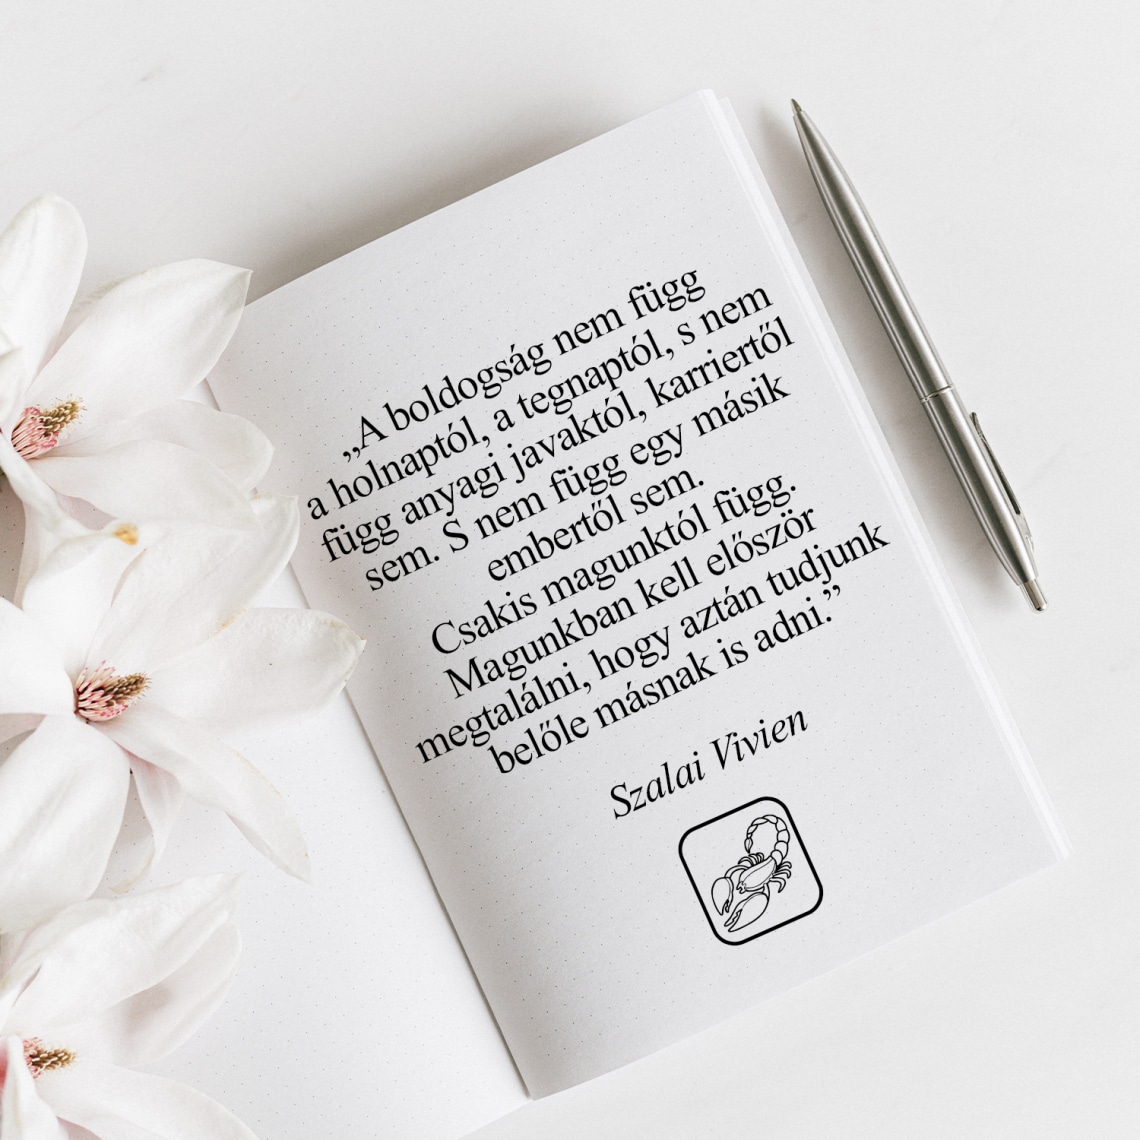 „A boldogság nem függ
a holnaptól, a tegnaptól, s nem
függ anyagi javaktól, karriertől
sem. S nem függ egy másik
embertől sem.
Csakis magunktól függ.
Magunkban kell először
megtalálni, hogy aztán tudjunk
belőle másnak is adni.”
Szalai Vivien